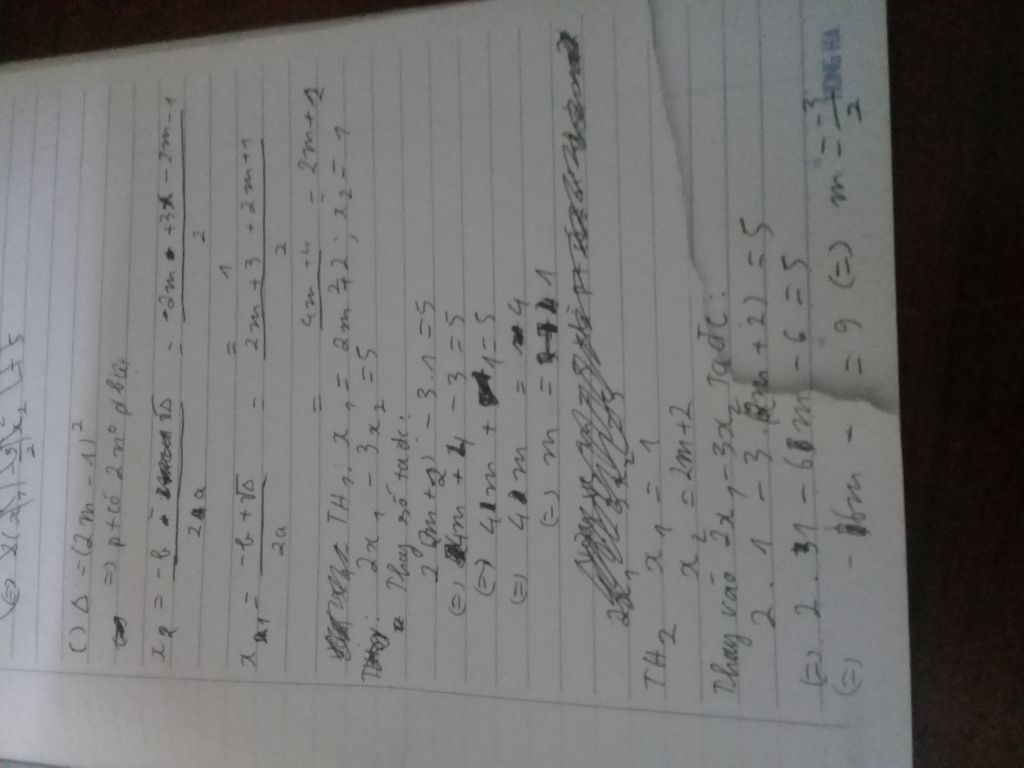 c) Δ = (2m - 1)²
=> pt có 2 nº pbiệt
x₂ = -b - √Δ / 2a = 2m + 3 - 2m - 1 / 2
= 1
x₁ = -b + √Δ / 2a = 2m + 3 + 2m + 1 / 2
= 4m + 4 / 2 = 2m + 2
TH₁: x₁ = 2m + 2 ; x₂ = 1
2x₁ - 3x₂ = 5
Thay số ta đc:
2(2m + 2) - 3.1 = 5
(=) 4m + 4 - 3 = 5
(=) 4m + 1 = 5
(=) 4m = 4
(=) m = 1
TH₂ x₁ = 1
x₂ = 2m + 2
Thay vào 2x₁ - 3x₂ Ta đc:
2.1 - 3(2m + 2) = 5
(=) 2.1 - 6m - 6 = 5
(=) -6m = 9 (=) m = -3/2
HONG HA